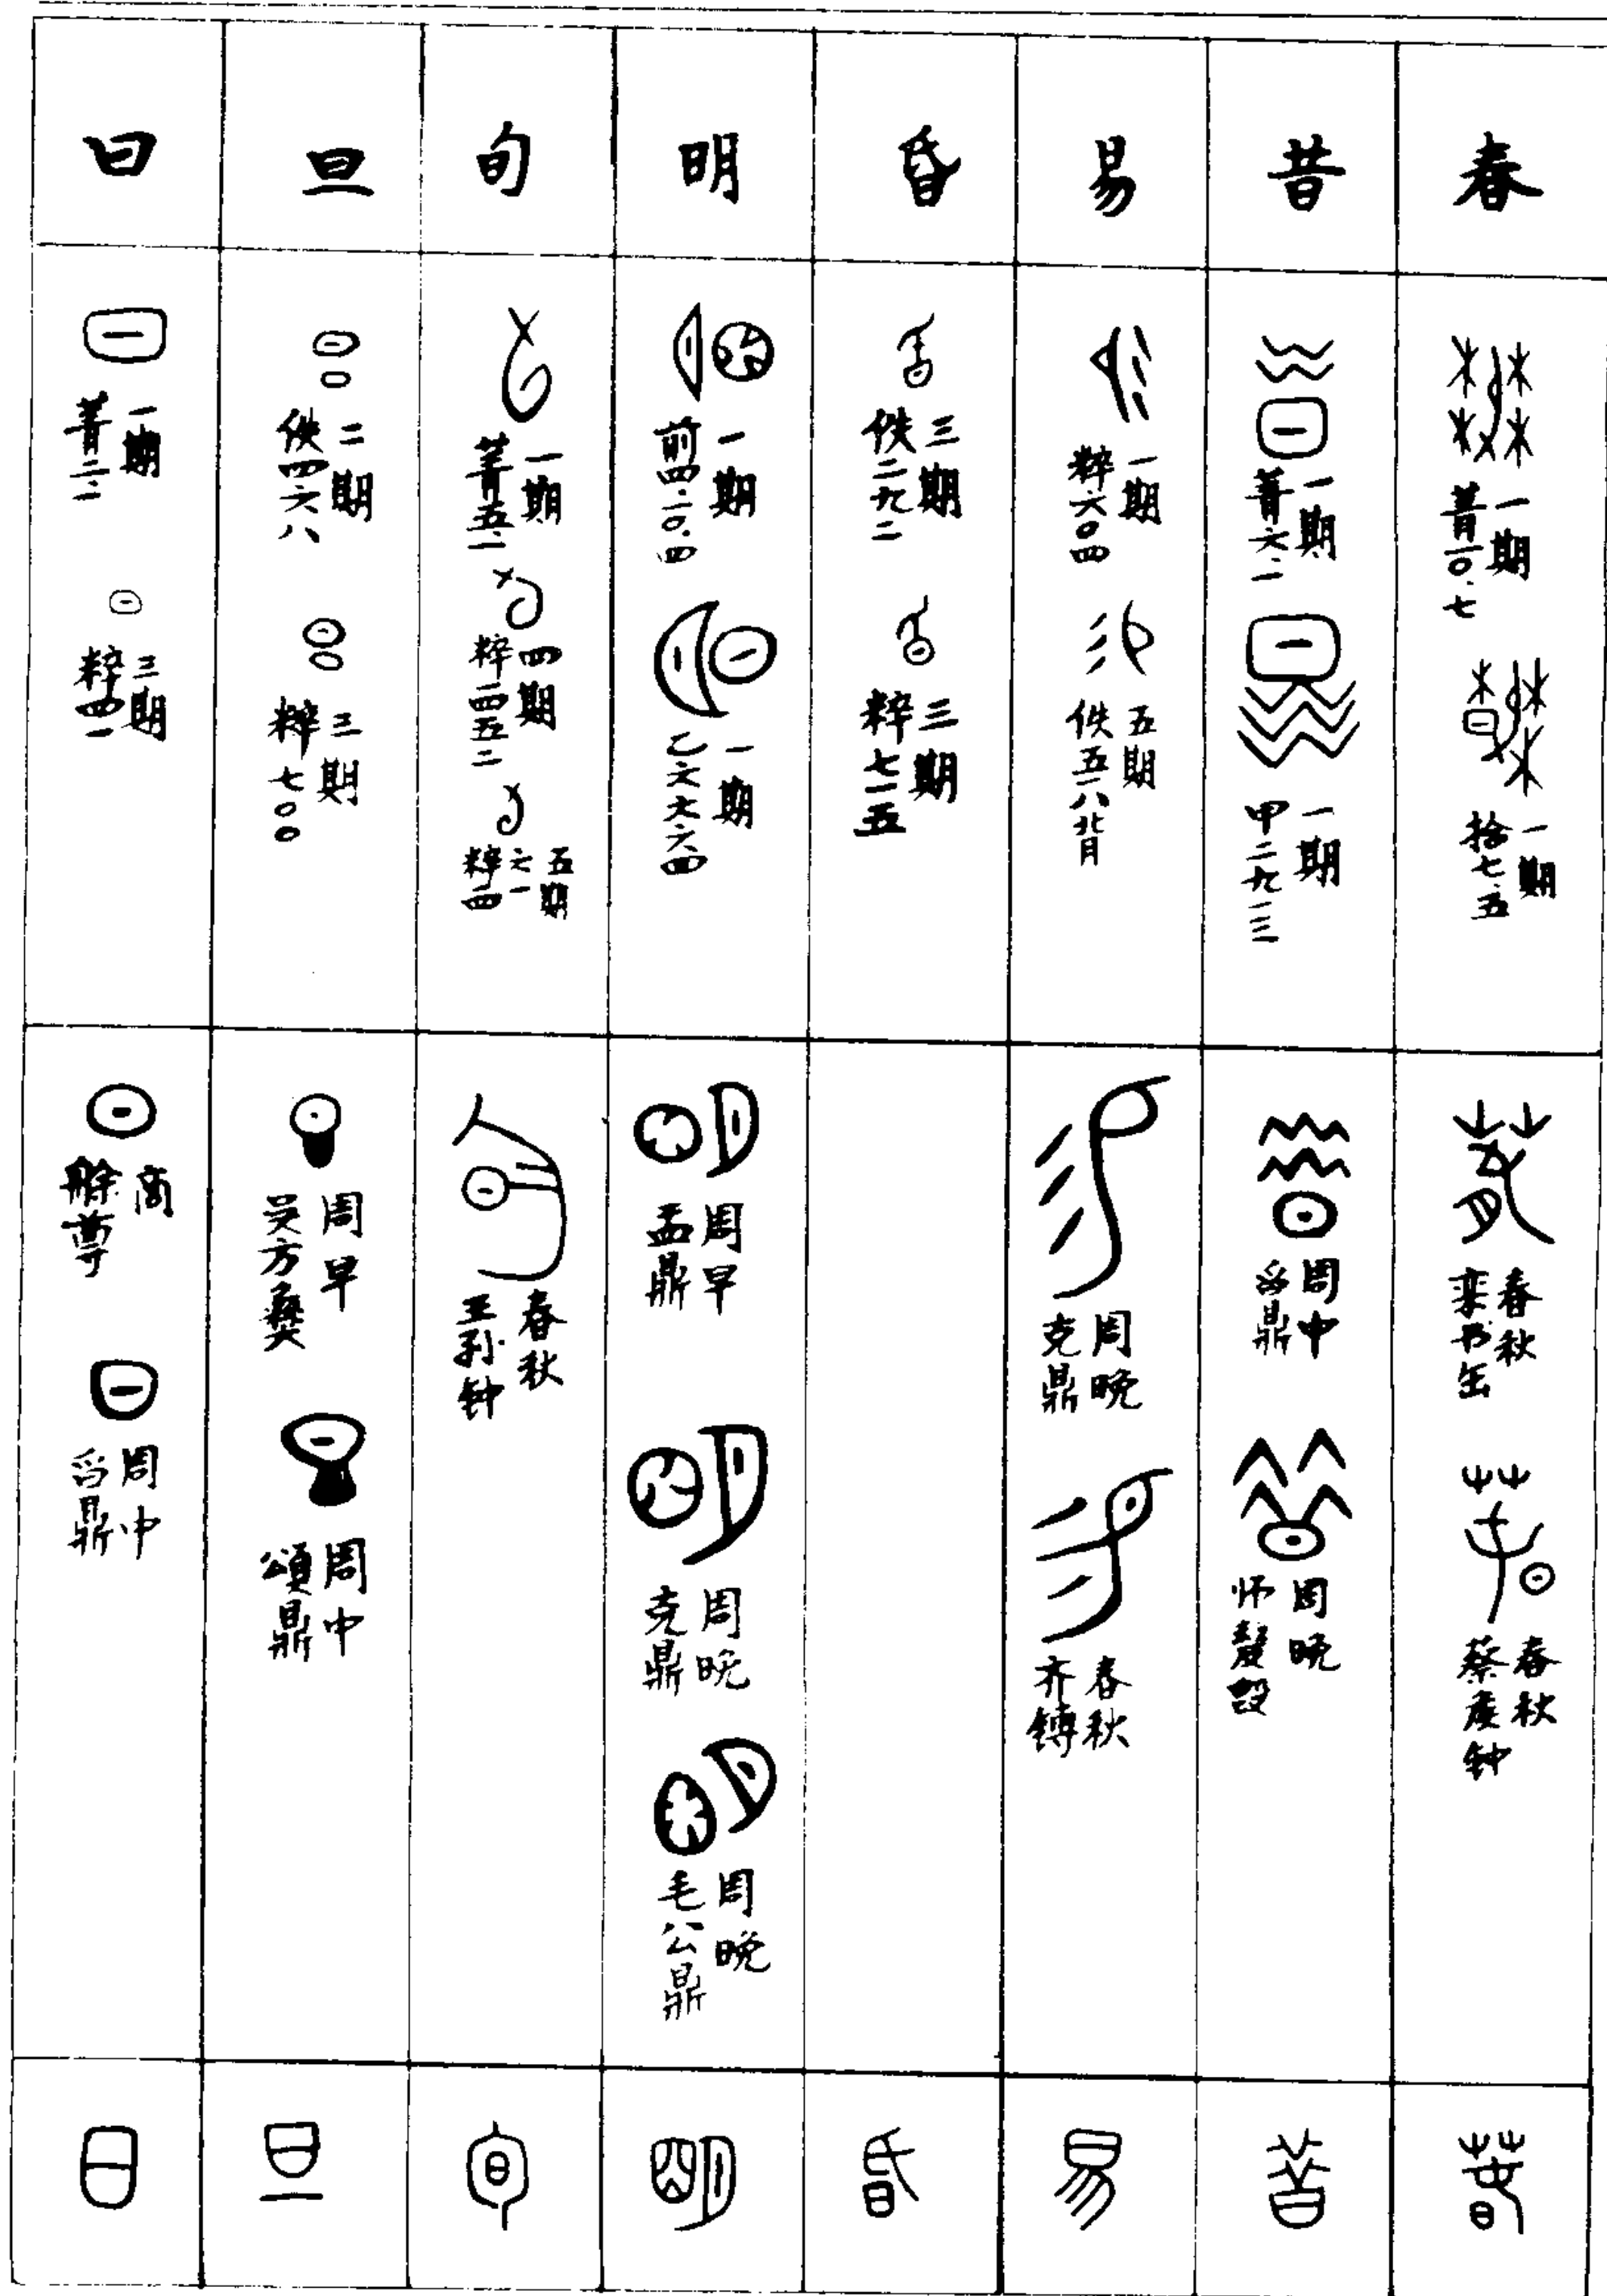 日 旦 旬 明 昏 易 昔 春
一期
菁二·一
三期
粹四一
二期
佚四六八
三期
粹七〇〇
一期
菁五·一
四期
粹一四五二
五期
粹一四六一
一期
前四·一〇·四
一期
乙六六六四
三期
佚二九二
三期
粹七一五
一期
粹六〇四
五期
佚五一八背
一期
菁六·一
一期
甲二九一三
一期
菁一〇·七
一期
拾七·五
商
艅尊
周中
舀鼎
周早
吴方彝
周中
頌鼎
春秋
王孙钟
周早
盂鼎
周晚
克鼎
周晚
毛公鼎
周晚
克鼎
春秋
齐镈
周中
舀鼎
周晚
师嫠𣪘
春秋
栾书缶
春秋
蔡侯钟
日 旦 旬 明 昏 易 昔 春